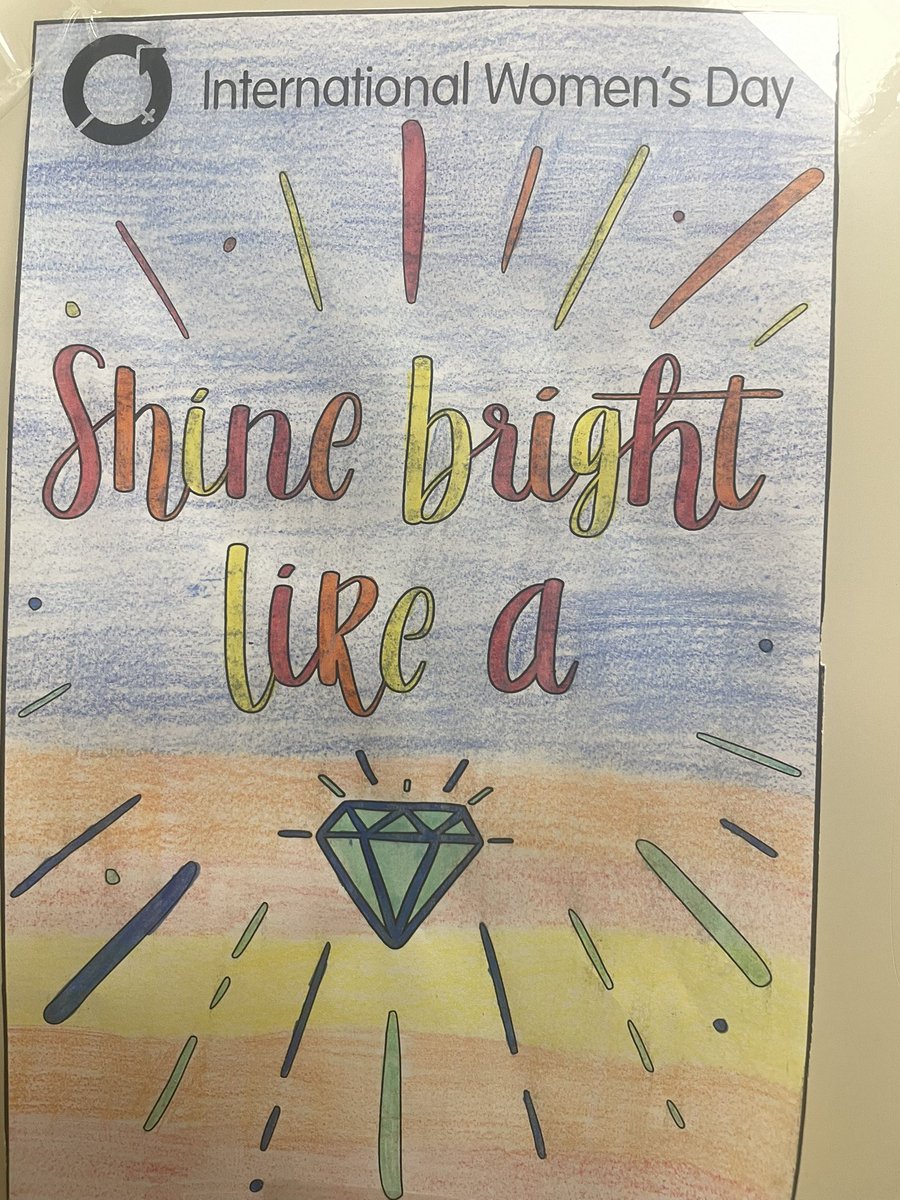 International Women's Day
Shine bright
like a